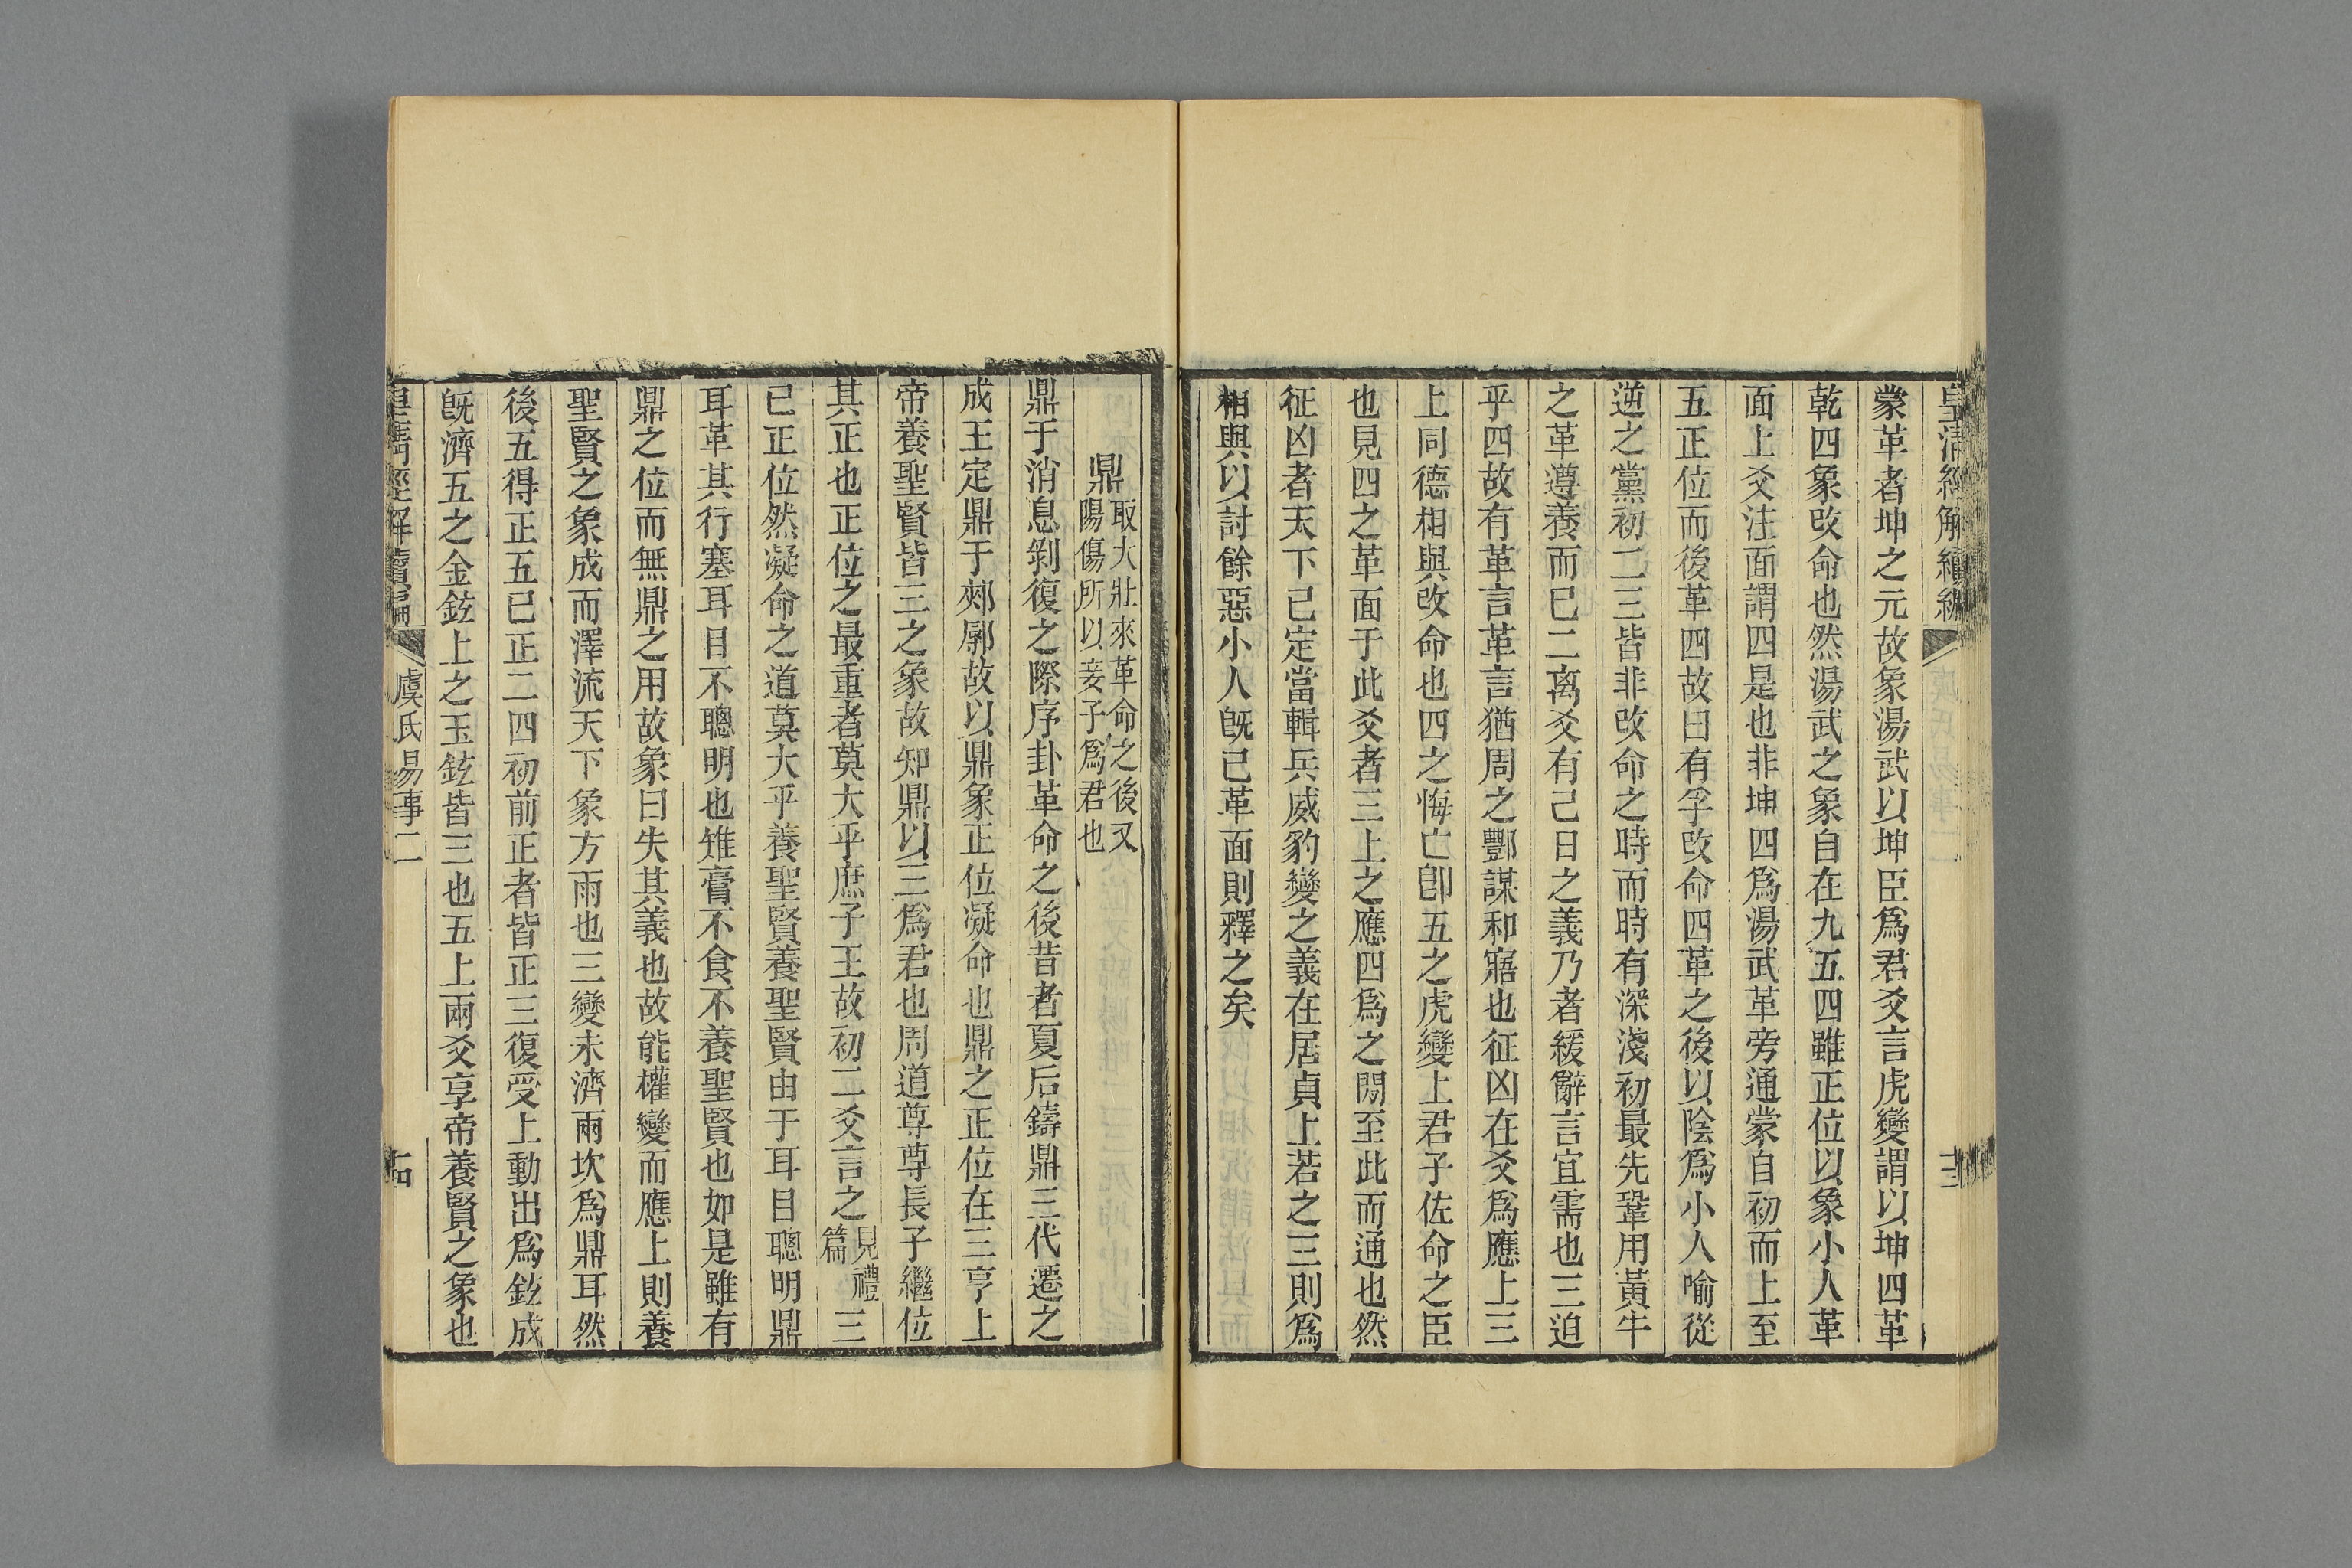 皇清經解續編
十三
蒙革者坤之元故象湯武以坤臣爲君爻言虎變謂以坤四革
乾四象改命也然湯武之象自在九五四雖正位以象小人革
面上爻注面謂四是也非坤四爲湯武革旁通蒙自初而上至
五正位而後革四故曰有孚改命四革之後以陰爲小人喻從
逆之黨初二三皆非改命之時而時有深淺初最先鞏用黃牛
之革遵養而已二离爻有己日之義乃者緩辭言宜需也三迫
乎四故有革言革言猶周之酆謀和寤也征凶在爻爲應上三
上同德相與改命也四之悔亡卽五之虎變上君子佐命之臣
也見四之革面于此爻者三上之應四爲之閡至此而通也然
征凶者天下已定當輯兵威豹變之義在居貞上若之三則爲
相與以討餘惡小人旣已革面則釋之矣
鼎取大壯來革命之後又
陽傷所以妾子爲君也
鼎于消息剝復之際序卦革命之後昔者夏后鑄鼎三代遷之
成王定鼎于郟廓故以鼎象正位凝命也鼎之正位在三亨上
帝養聖賢皆三之象故知鼎以三爲君也周道尊尊長子繼位
其正也正位之最重者莫大乎庶子王故初二爻言之見禮
篇三
已正位然凝命之道莫大乎養聖賢養聖賢由于耳目聰明鼎
耳革其行塞耳目不聰明也雉膏不食不養聖賢也如是雖有
鼎之位而無鼎之用故象曰失其義也故能權變而應上則養
聖賢之象成而澤流天下象方雨也三變未濟兩坎爲鼎耳然
後五得正五已正二四初前正者皆正三復受上動出爲鉉成
旣濟五之金鉉上之玉鉉皆三也五上兩爻享帝養賢之象也
皇清經解續編
虞氏易事二
十四